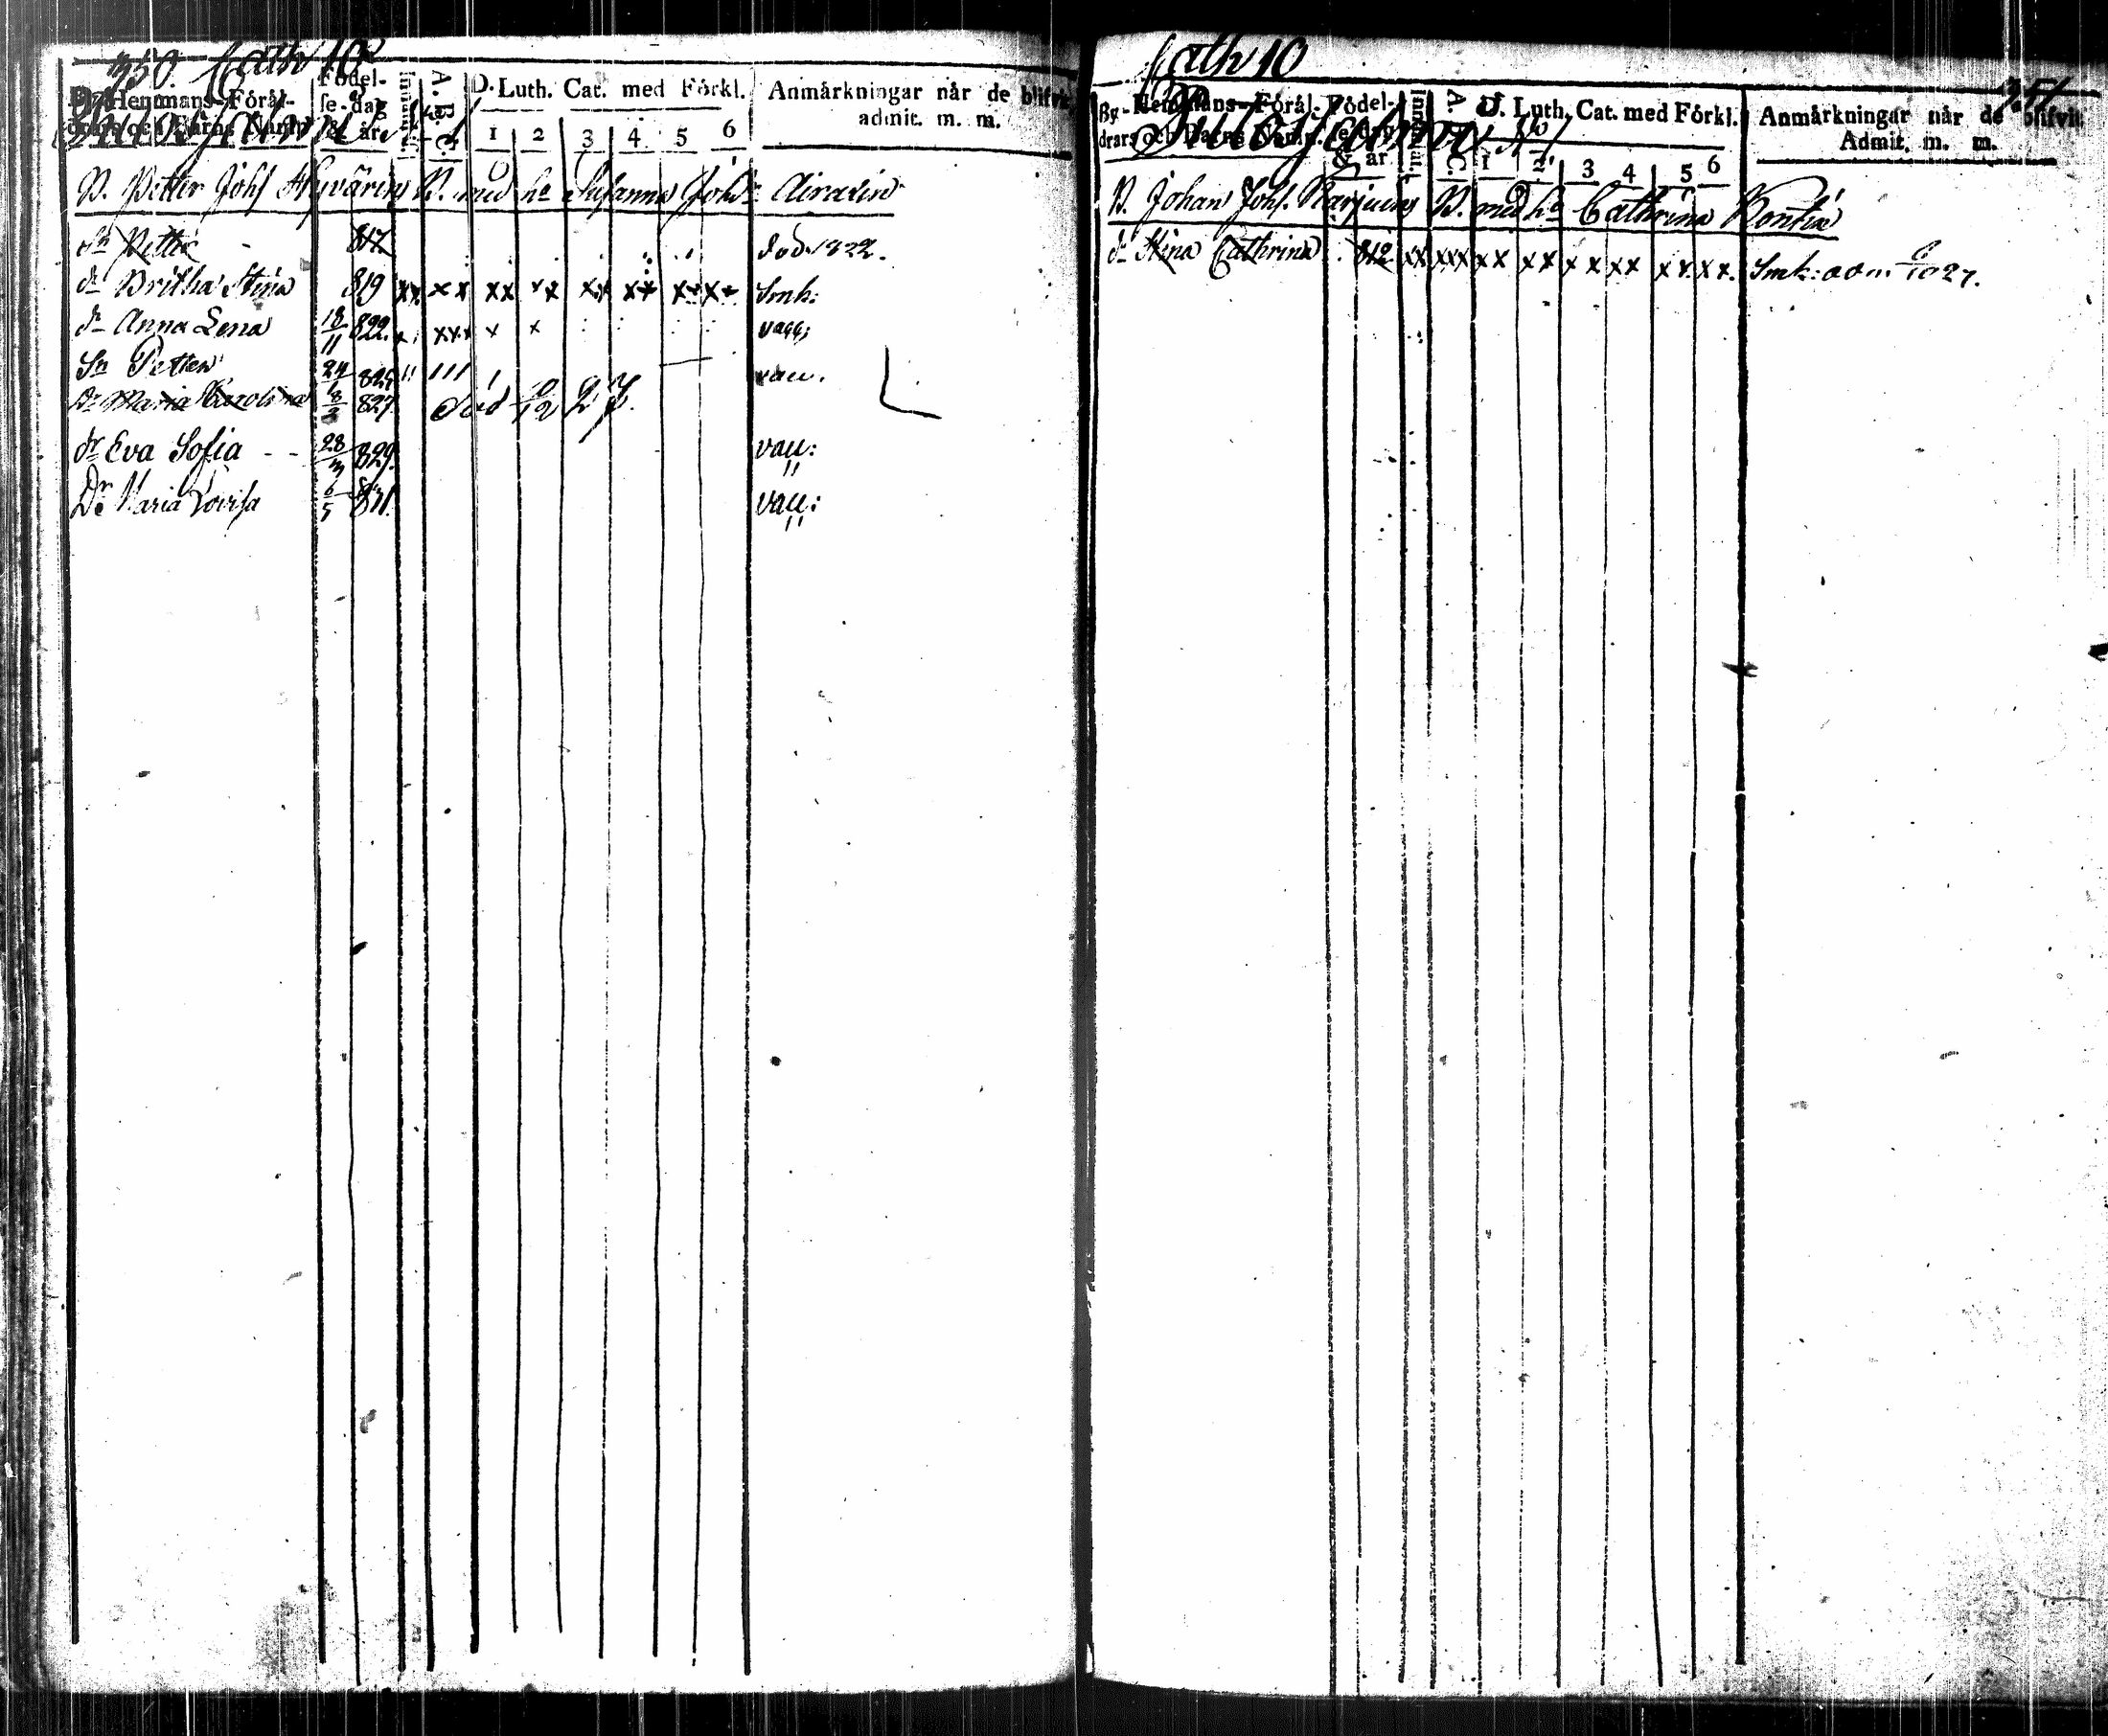 350. Cath 10
By-Hemmans-Förål-
drars och Barns Namn.
Födel-
se-dag
& år.
Innanläs.
A. B. C.
D. Luth. Cat. med Förkl.
1 2 3 4 5 6
Anmärkningar når de blifvit
admit. m. m.
B. Petter Johs Hyvärin B. med ha Susanna Johsdr Airaxin
Sn Petter 817 död 1822.
dr Britha Stina 819 xx xx xx xx xx xx xx Smk:
dr Anna Lena 18/11 822. x xxx x x vacc;
Sn Petter 24/ 825 " ııı ı vacc.
Dr Maria Carolina 18/2 827. död /12 27.
dr Eva Sofia - - 28/ 829. vacc:
Dr Maria Lovisa 6/5 831. vacc:
Cath 10
351
By-Hemmans-Förål-
drars och Barns Namn.
Födel-
se-dag
& år
Innanläs.
A. B. C.
D. Luth. Cat. med Förkl.
1 2 3 4 5 6
Anmärkningar når de blifvit
Admit. m. m.
B. Johan Johs. B. med ha Cathrina
dr Stina Cathrina 812 xx xxx xx xx xx xx xx xx. Smk: adm. 27.